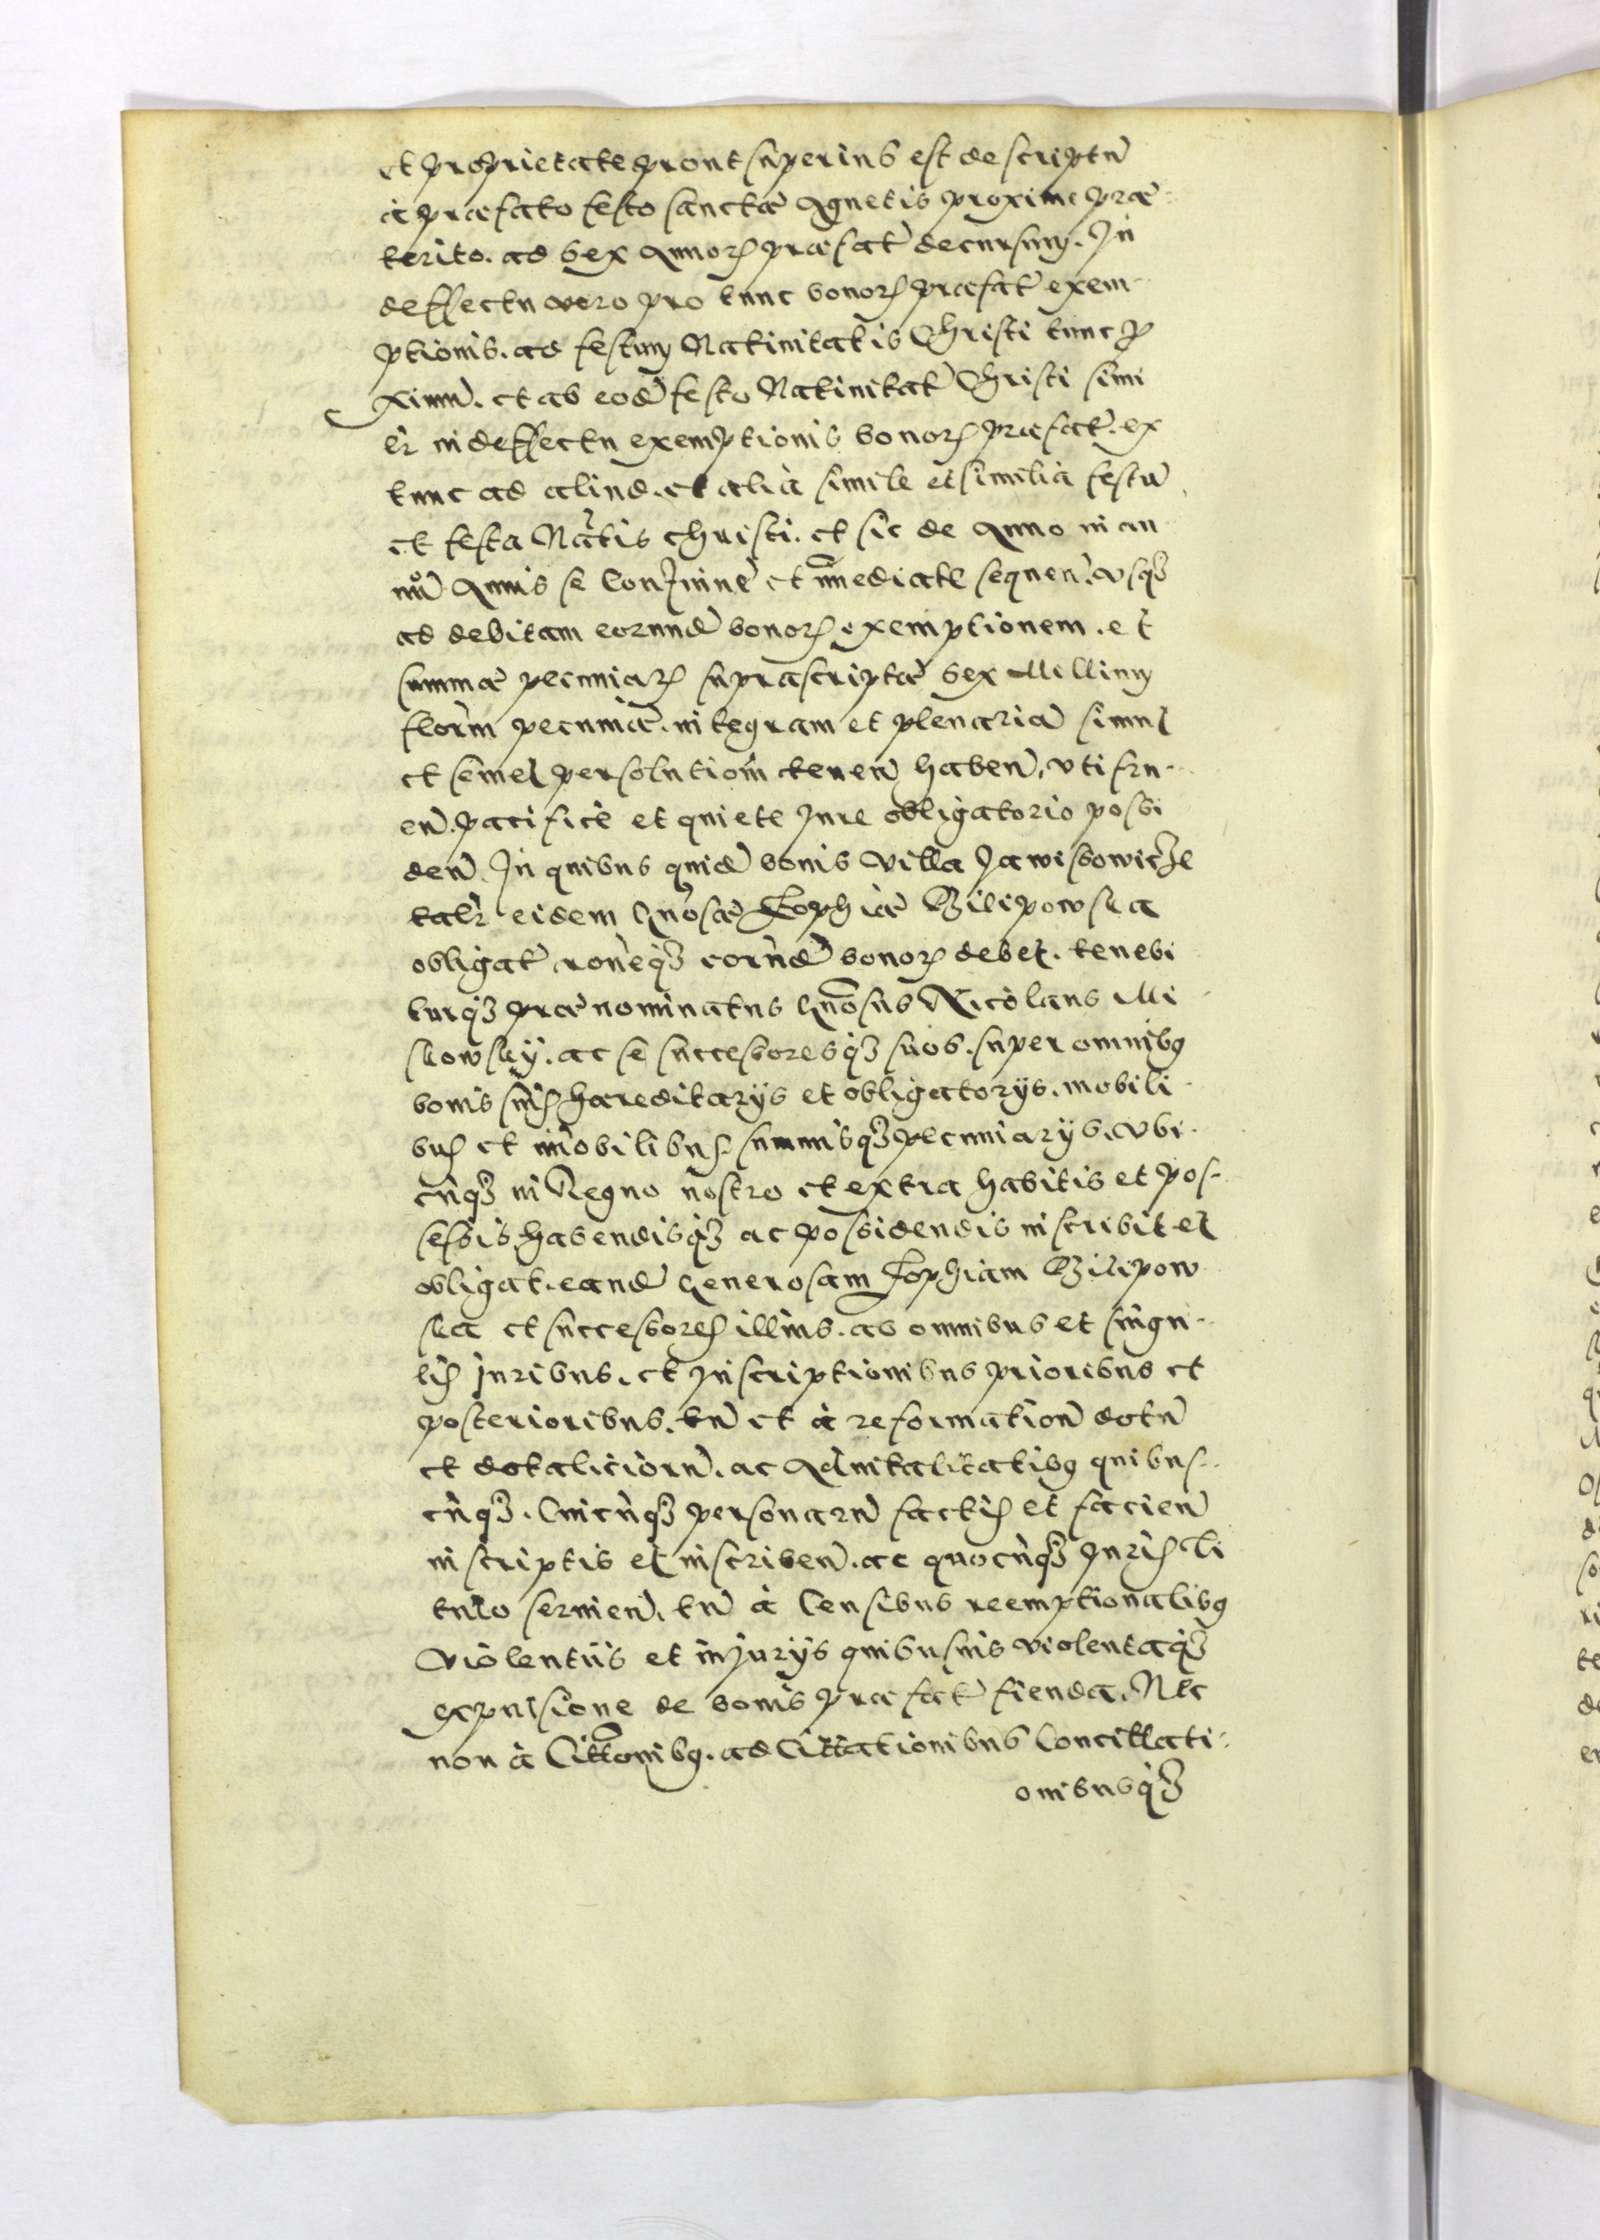 et proprietate prout superius est descriptũ
à præfato festo sanctæ Agnetis proxime præ
terito. ad sex Annoꝝ præfat̃ decursum. In
deffectu vero pro tunc bonoꝝ præfat̃ exem
ptionis. ad festum Natiuitatis Christi tunc ꝓ
ximũ. et ab eodẽ festo Natiuitat̃ Christi simi
lr̃ in deffectu exemptionis bonoꝝ præfat̃. ex
tunc ad aliud. et alia simile et similia festũ
et festa Nãtis Christi. et sic de Anno in an
nũ Annis se Coniunc̃ et immediate sequeñ. vsqꝫ
ad debitam eorundẽ bonoꝝ exemptionem. et
summæ pecuniaꝝ suprascriptæ sex Millium
florm̃ pecuniæ. integram et plenariã simul
et semel persolutiom̃ teneñ habeñ, vti fru
eñ. pacifice et quiete Iure obligatorio possi
deñ. In quibus quidẽ bonis villa Jawissowicze
talr̃ eidem Gñosæ Zophiæ Bilipowska
obligat̃ rõneqꝫ eorũdẽ bonoꝝ debet. tenebi
turqꝫ prænominatus Gñosus Nicolaus Mi
skowsky. ac se successoresqꝫ suos. super omnibꝰ
bonis suis hæreditarijs et obligatorijs. mobili
bus et im̃obilibus. summisqꝫ pecuniarijs. vbi
cũqꝫ in Regno nostro et extra habitis et pos
sessis, habendisqꝫ ac possidendis inscribit et
obligat. eandẽ Generosam Zophiam Bilipow
ska et successores illius. ab omnibus et singu
lis iuribus. et Inscriptionibus prioribus et
posterioribus. tũ et à reformationẽ dotũ
et dotalitiorũ. ac Aduitalitatibꝰ quibus
cũqꝫ. Cuicũqꝫ personarũ factis et facieñ
inscriptis et inscribeñ. ac quocũqꝫ Iuris ti
tulo serüieñ. tũ à Censibus reemptionalibꝰ
violentiis et iniurijs quibusuis violentaqꝫ
expulsione de bonis præfat̃ fienda. Nec
non à Citt̃onibꝰ. ad Cittationibus Concittati
onibusqꝫ